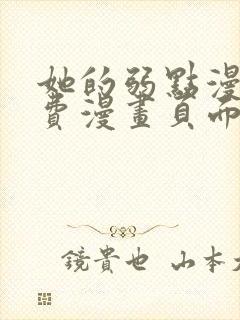 她的弱點漫
費漫畫頁面
鏡貴也 山本